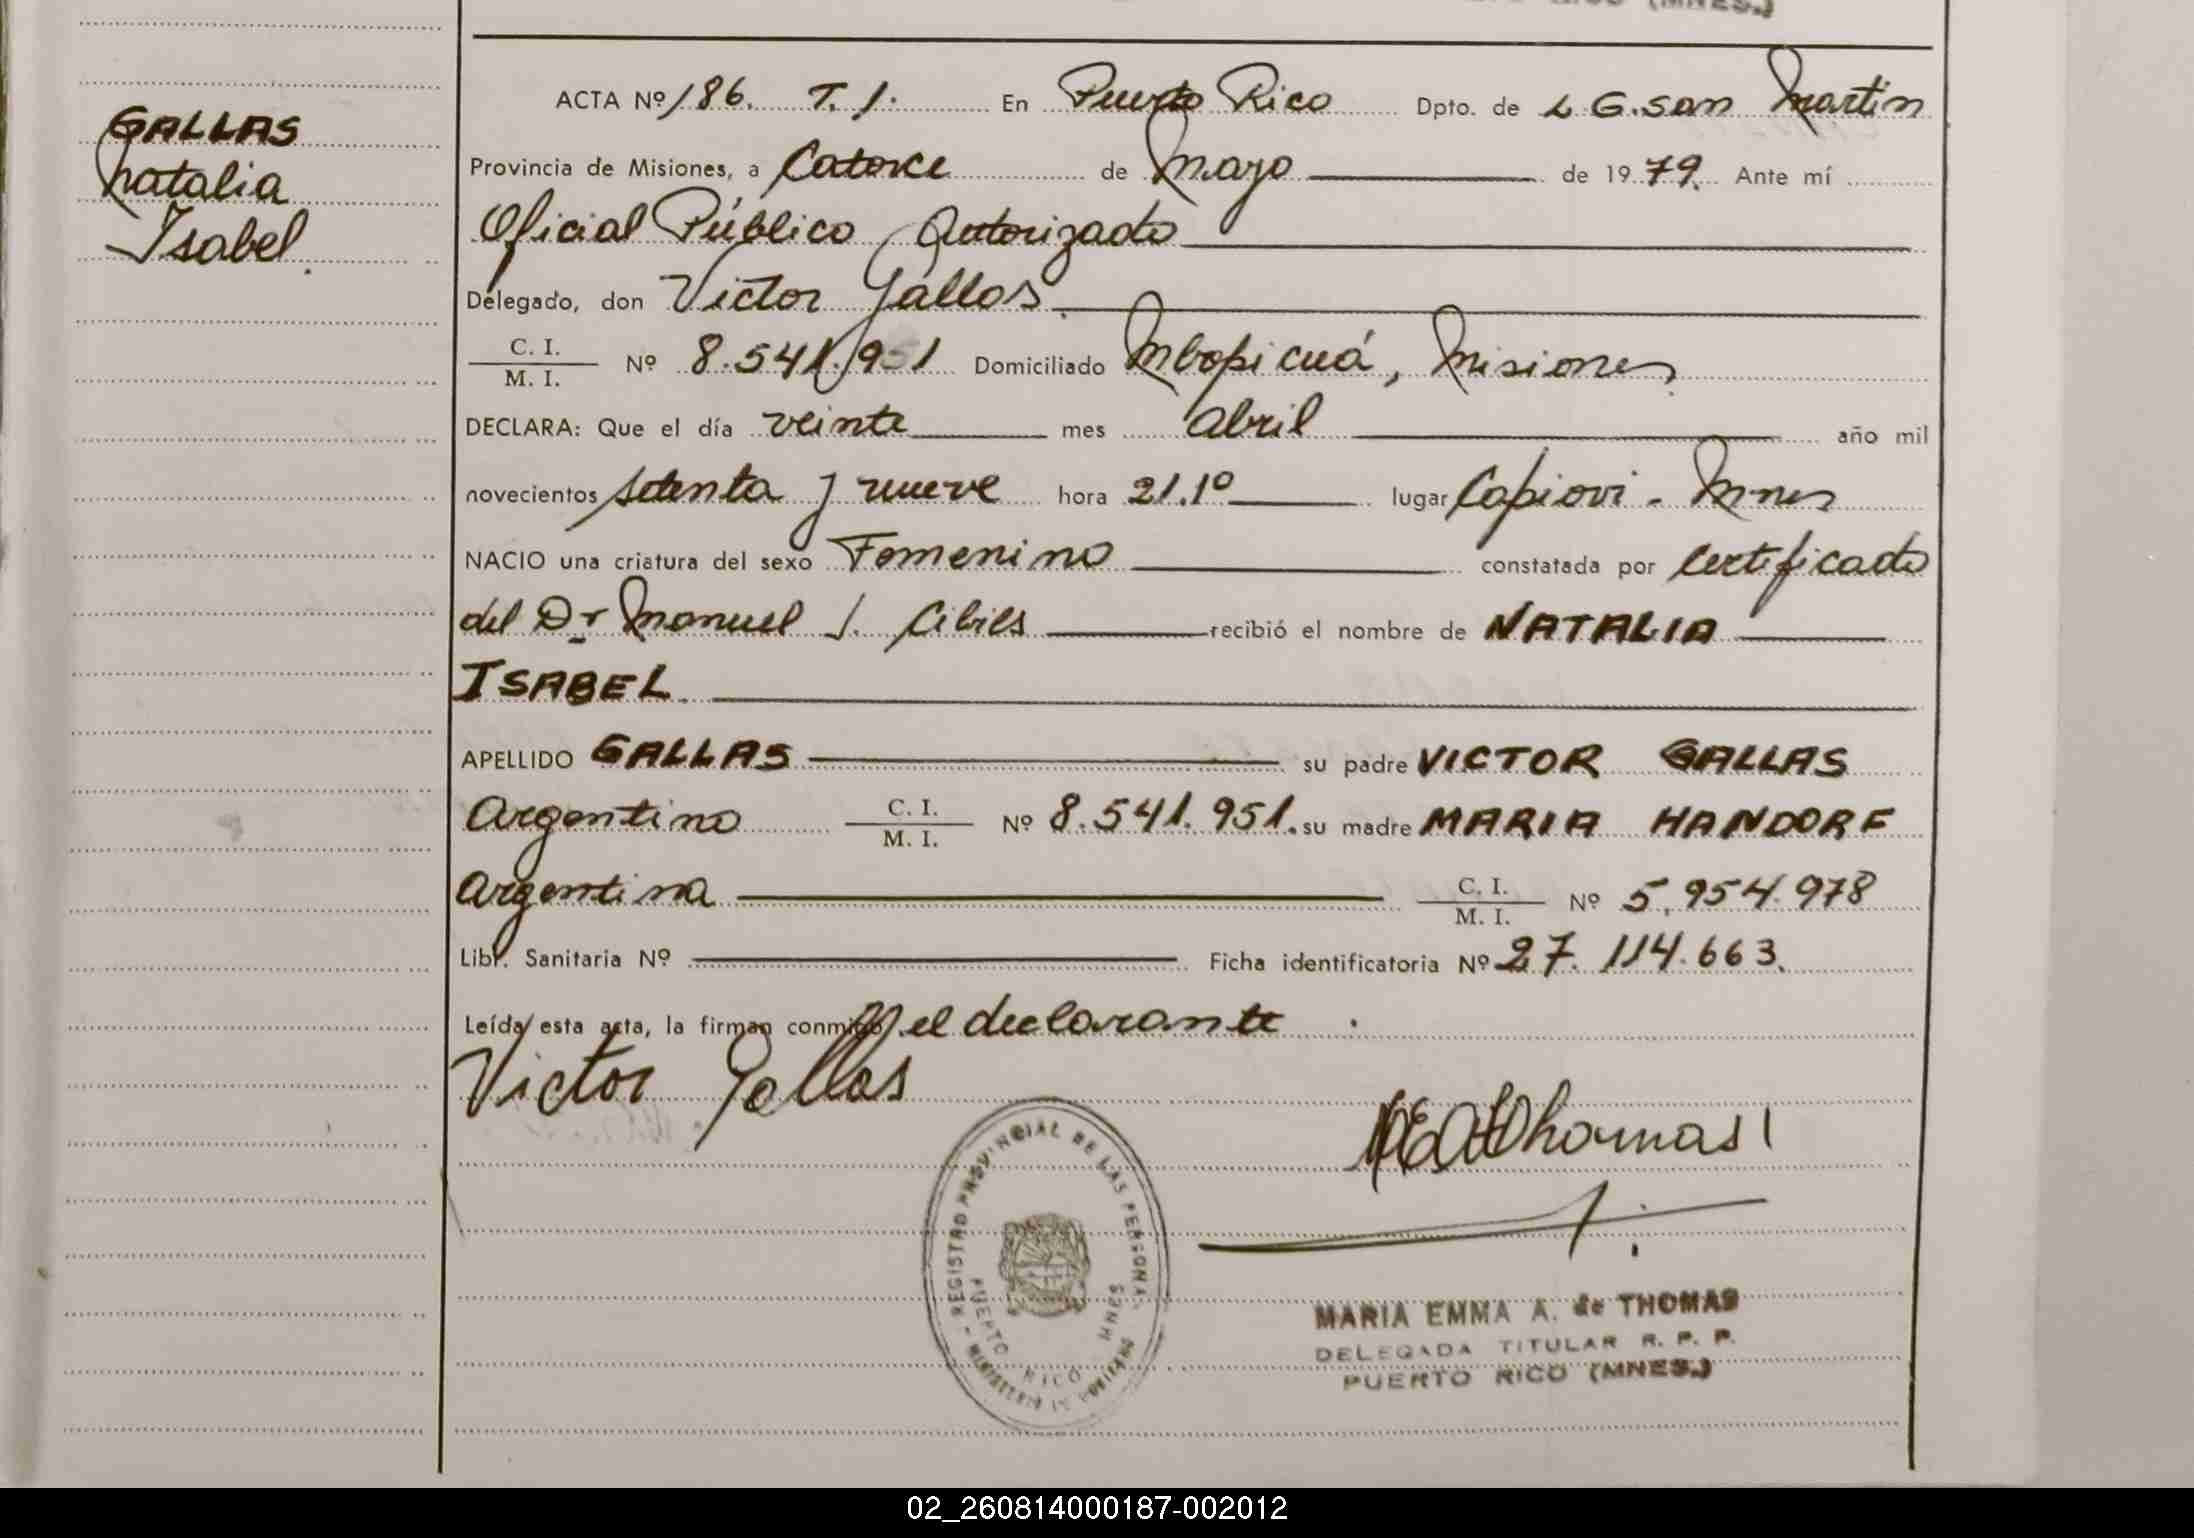 GALLAS
Natalia
Isabel.
PUERTO RICO (MNES.)
ACTA Nº 186. T. 1. En Puerto Rico Dpto. de L. G. San Martin
Provincia de Misiones, a Catorce de Mayo de 1979. Ante mí
Oficial Público Autorizado
Delegado, don Victor Gallas.
C. I. / M. I. Nº 8.541.951 Domiciliado Mbopicuá, Misiones.
DECLARA: Que el día veinte mes abril año mil
novecientos setenta y nueve hora 21.10 lugar Capiovi - Mnes
NACIO una criatura del sexo Femenino constatada por Certificado
del Dr Manuel J. Cibils recibió el nombre de NATALIA
ISABEL.
APELLIDO GALLAS su padre VICTOR GALLAS
Argentino C. I. / M. I. Nº 8.541.951. su madre MARIA HANDORF
Argentina C. I. / M. I. Nº 5.954.978
Libr. Sanitaria Nº Ficha identificatoria Nº 27.114.663.
Leída esta acta, la firman conmigo el declarante.
Victor Gallas
MEAdeThomas
REGISTRO PROVINCIAL DE LAS PERSONAS - MINISTERIO DE GOBIERNO
PUERTO RICO MNES
MARIA EMMA A. de THOMAS
DELEGADA TITULAR R. P. P.
PUERTO RICO (MNES.)
02_260814000187-002012